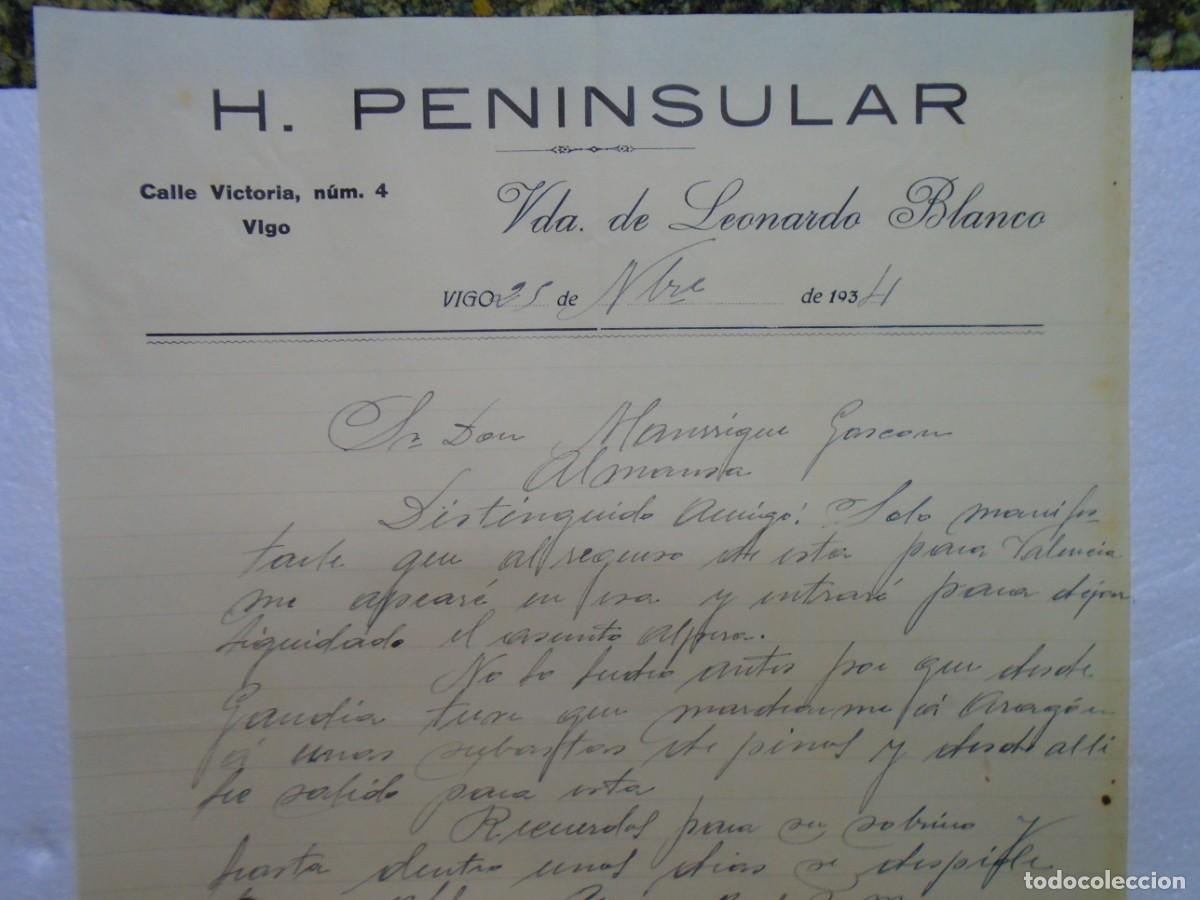 H. PENINSULAR
Calle Victoria, núm. 4
Vigo
Vda. de Leonardo Blanco
VIGO 25 de Nbre de 1934
Sr Don Manrrique Gascon
Almansa
Distinguido Amigo: Solo manifes
tarle que al regreso de esta para Valencia
me apearé en esa y entraré para dejar
liquidado el asunto Alpera.
No lo  antes por que desde
Gandia tuve que marcharme á Aragón
á unas subastas de pinos y desde alli
he salido para esta
Recuerdos para su sobrino y
hasta dentro unos dias se despide
todocoleccion